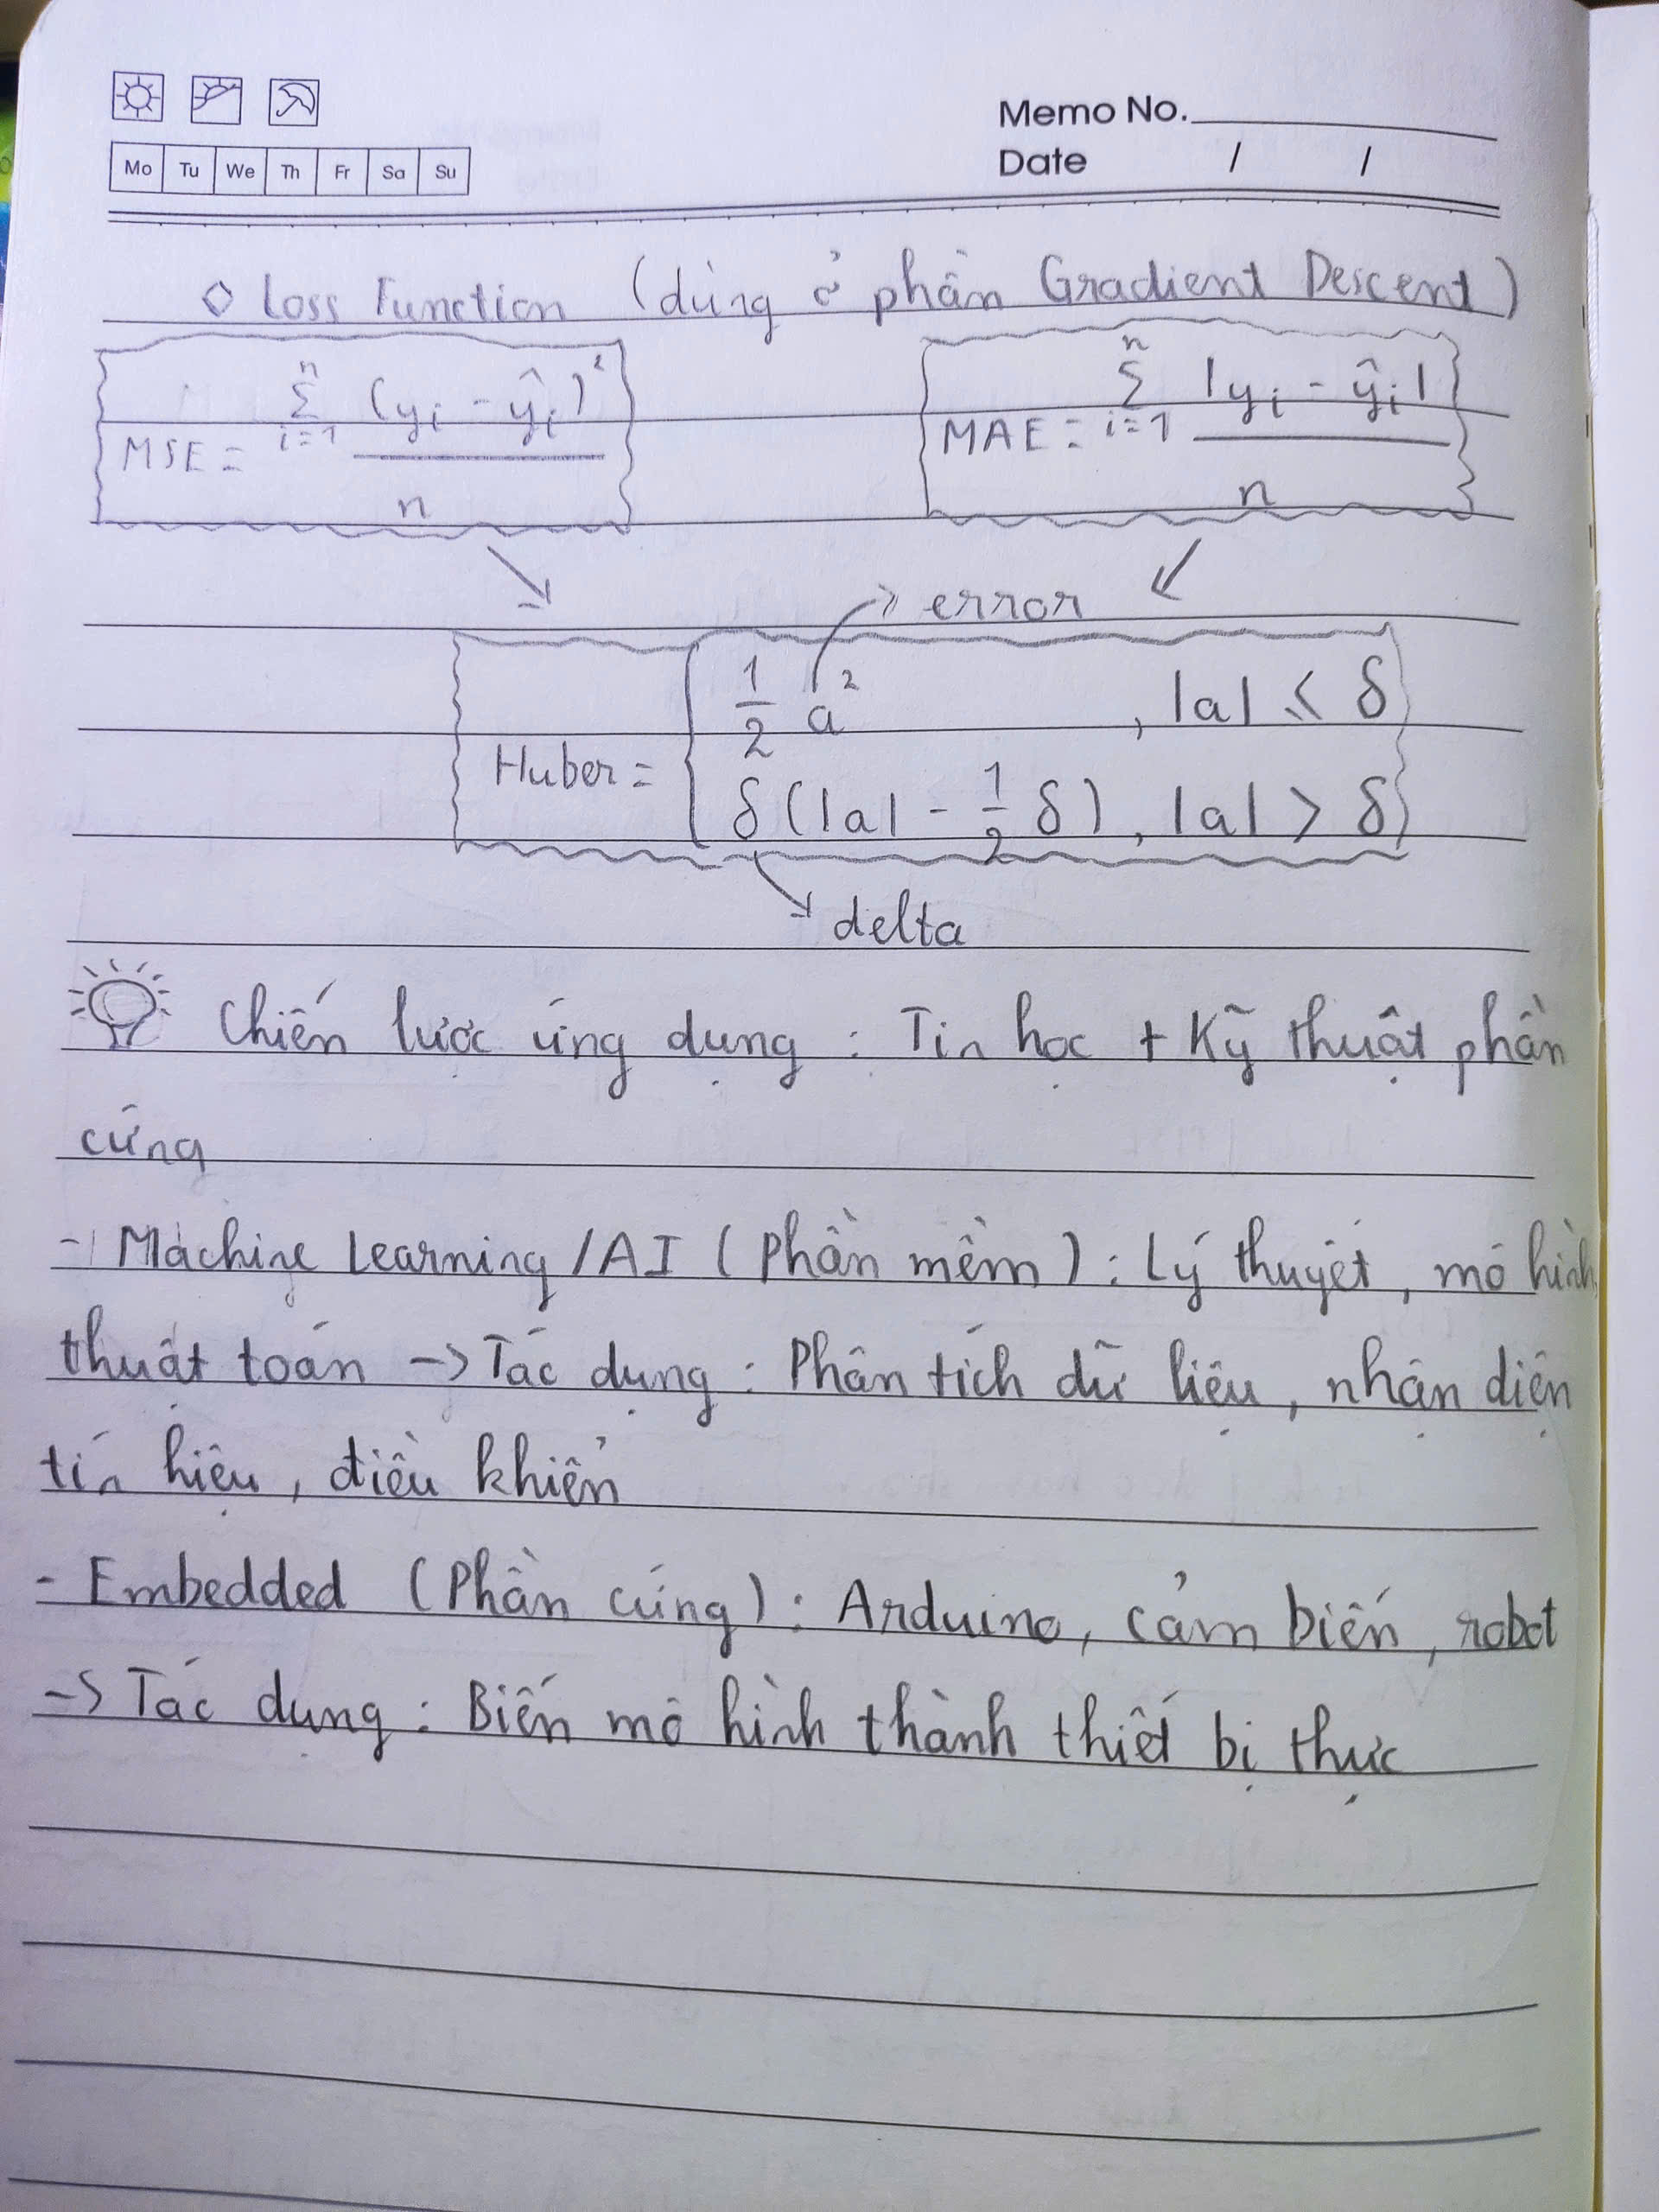 Memo No.
Mo Tu We Th Fr Sa Su
Date / /
◇ Loss Function (dùng ở phần Gradient Descent)
MSE = Σ_{i=1}^{n} (y_i - ŷ_i)² / n
MAE = Σ_{i=1}^{n} |y_i - ŷ_i| / n
error
Huber = { 1/2 a² , |a| ≤ δ
δ(|a| - 1/2 δ) , |a| > δ
delta
Chiến lược ứng dụng : Tin học + Kỹ thuật phần
cứng
- Machine Learning /AI (Phần mềm) : Lý thuyết, mô hình,
thuật toán -> Tác dụng : Phân tích dữ liệu, nhận diện
tín hiệu, điều khiển
- Embedded (Phần cứng) : Arduino, cảm biến, robot
-> Tác dụng : Biến mô hình thành thiết bị thực